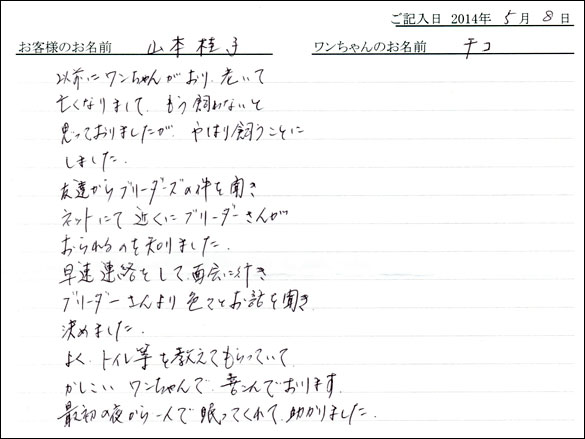 ご記入日 2014年 5月 8日
お客様のお名前 山本桂子 ワンちゃんのお名前 チコ
以前にワンちゃんがおり、老いて
亡くなりまして、もう飼わないと
思っておりましたが、やはり飼うことに
しました。
友達からブリーダーズの件を聞き
ネットにて近くにブリーダーさんが
おられるのを知りました。
早速連絡をして、面会に行き
ブリーダーさんより色々とお話を聞き
決めました。
よく、トイレ等を教えてもらっていて
かしこいワンちゃんで、喜んでおります。
最初の夜から一人で眠ってくれて、助かりました。